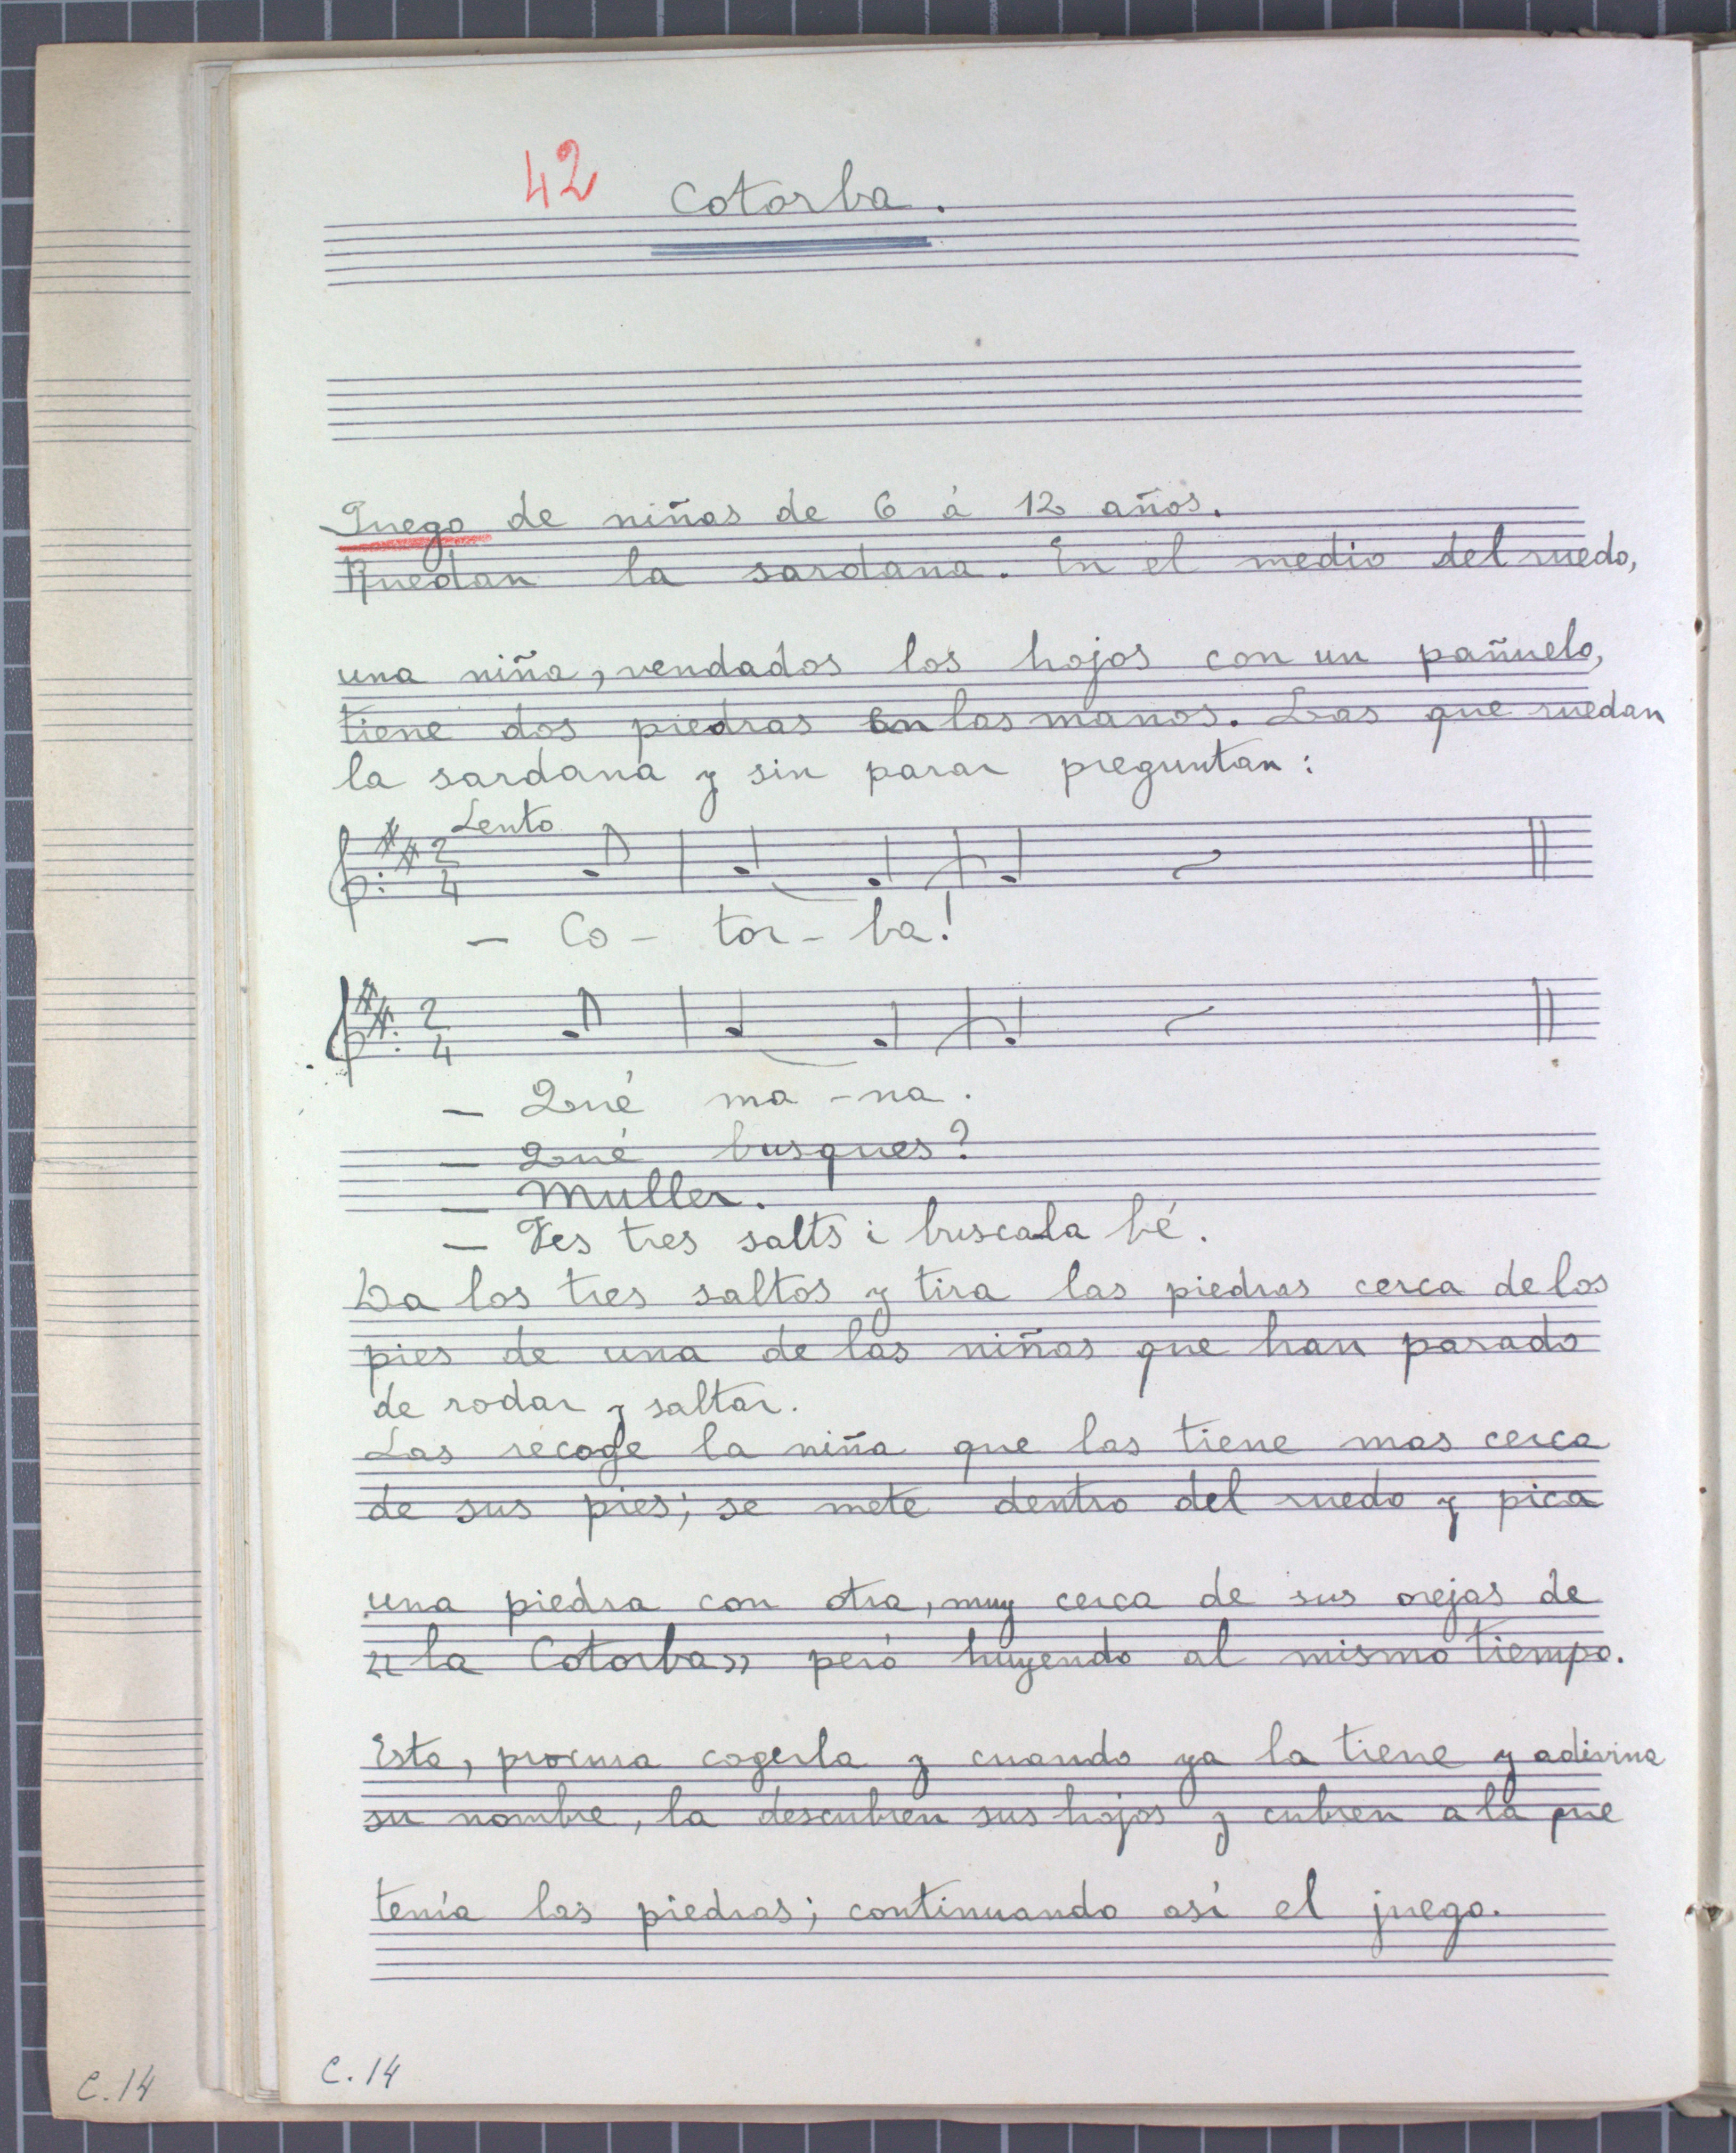 42 Cotorba.
Juego de niñas de 6 á 12 años.
Ruedan la sardana. En el medio del ruedo,
una niña, vendados los hojos con un pañuelo,
tiene dos piedras en las manos. Las que ruedan
la sardana y sin parar preguntan:
Lento
2
4
- Co - tor - ba!
2
4
- Qué ma - na.
- Qué busques?
- Muller.
- Fes tres salts i buscala bé.
Da los tres saltos y tira las piedras cerca de los
pies de una de las niñas que han parado
de rodar y saltar.
Las recoge la niña que las tiene mas cerca
de sus pies; se mete dentro del ruedo y pica
una piedra con otra, muy cerca de sus orejas de
«la Cotorba» peró huyendo al mismo tiempo.
Esta, procura cogerla y cuando ya la tiene y adivina
su nombre, la descubren sus hojos y cubren a la que
tenía las piedras; continuando así el juego.
C.14
C.14